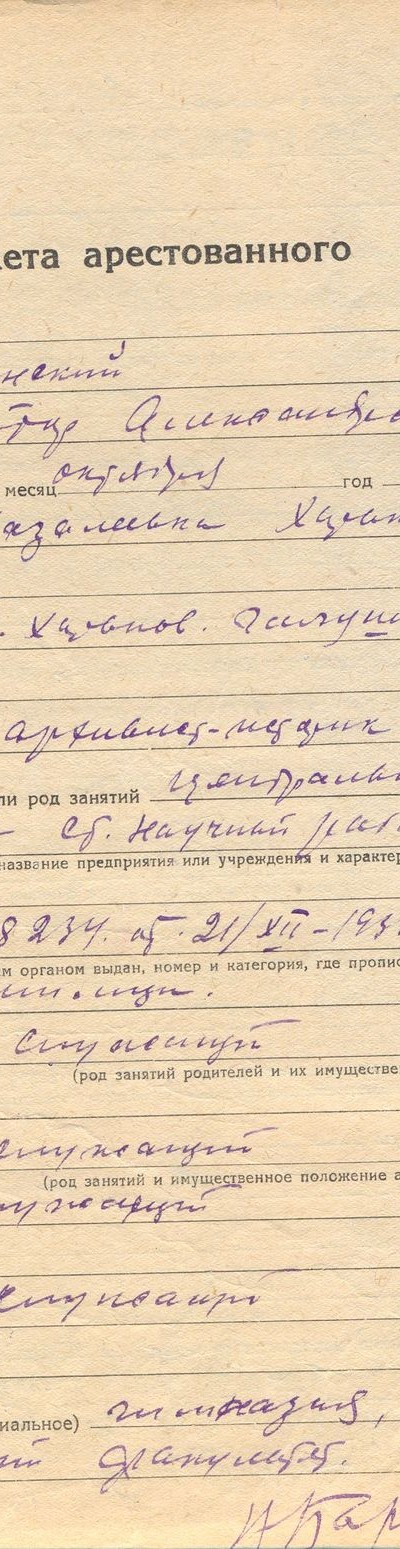 ета арестованного
нский
тор Александро
месяц октября год
азалеевка Харьк
. Харьков.
архивист-историк
ли род занятий Централь
– Ст. Научный раб
название предприятия или учреждения и характер
8234. от. 21/XII-193
м органом выдан, номер и категория, где пропис
служащий
(род занятий родителей и их имуществе
служащий
(род занятий и имущественное положение а
служащий
служащий
иальное) гимназия,
ий факультет.